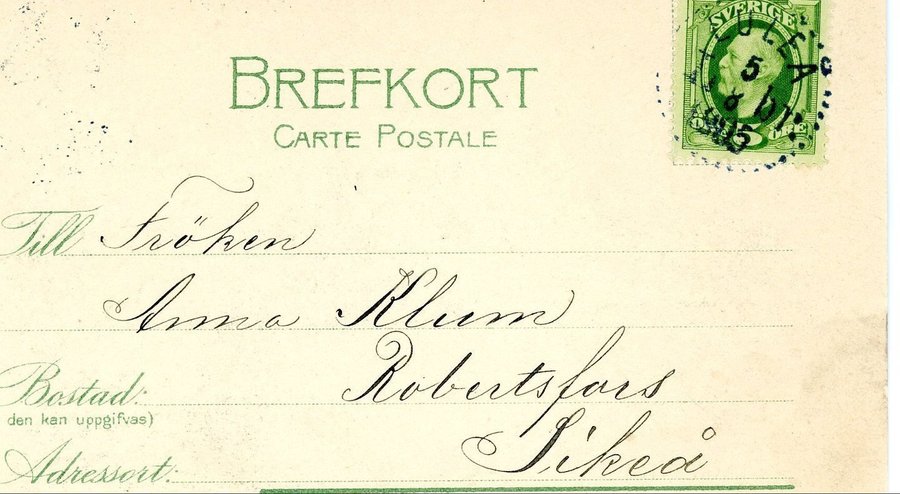 SVERIGE
BREFKORT
CARTE POSTALE
Till Fröken
Anna Klum
Robertsfors
Bostad:
(den kan uppgifvas)
Sikeå
Adressort: